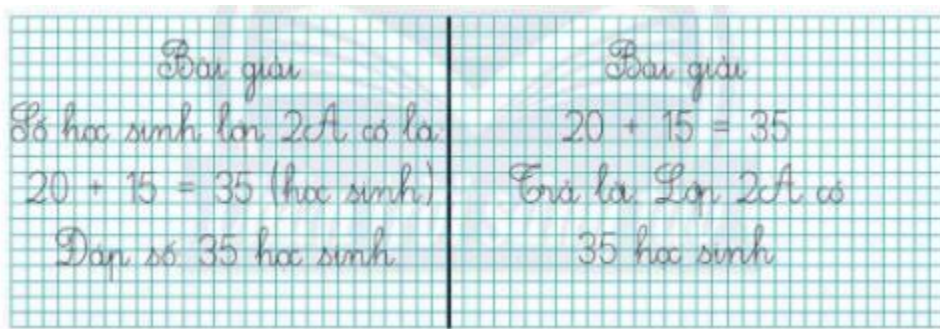 Bài giải
Số học sinh lớp 2A có là
20 + 15 = 35 (học sinh)
Đáp số 35 học sinh
Bài giải
20 + 15 = 35
Trả lời: Lớp 2A có
35 học sinh